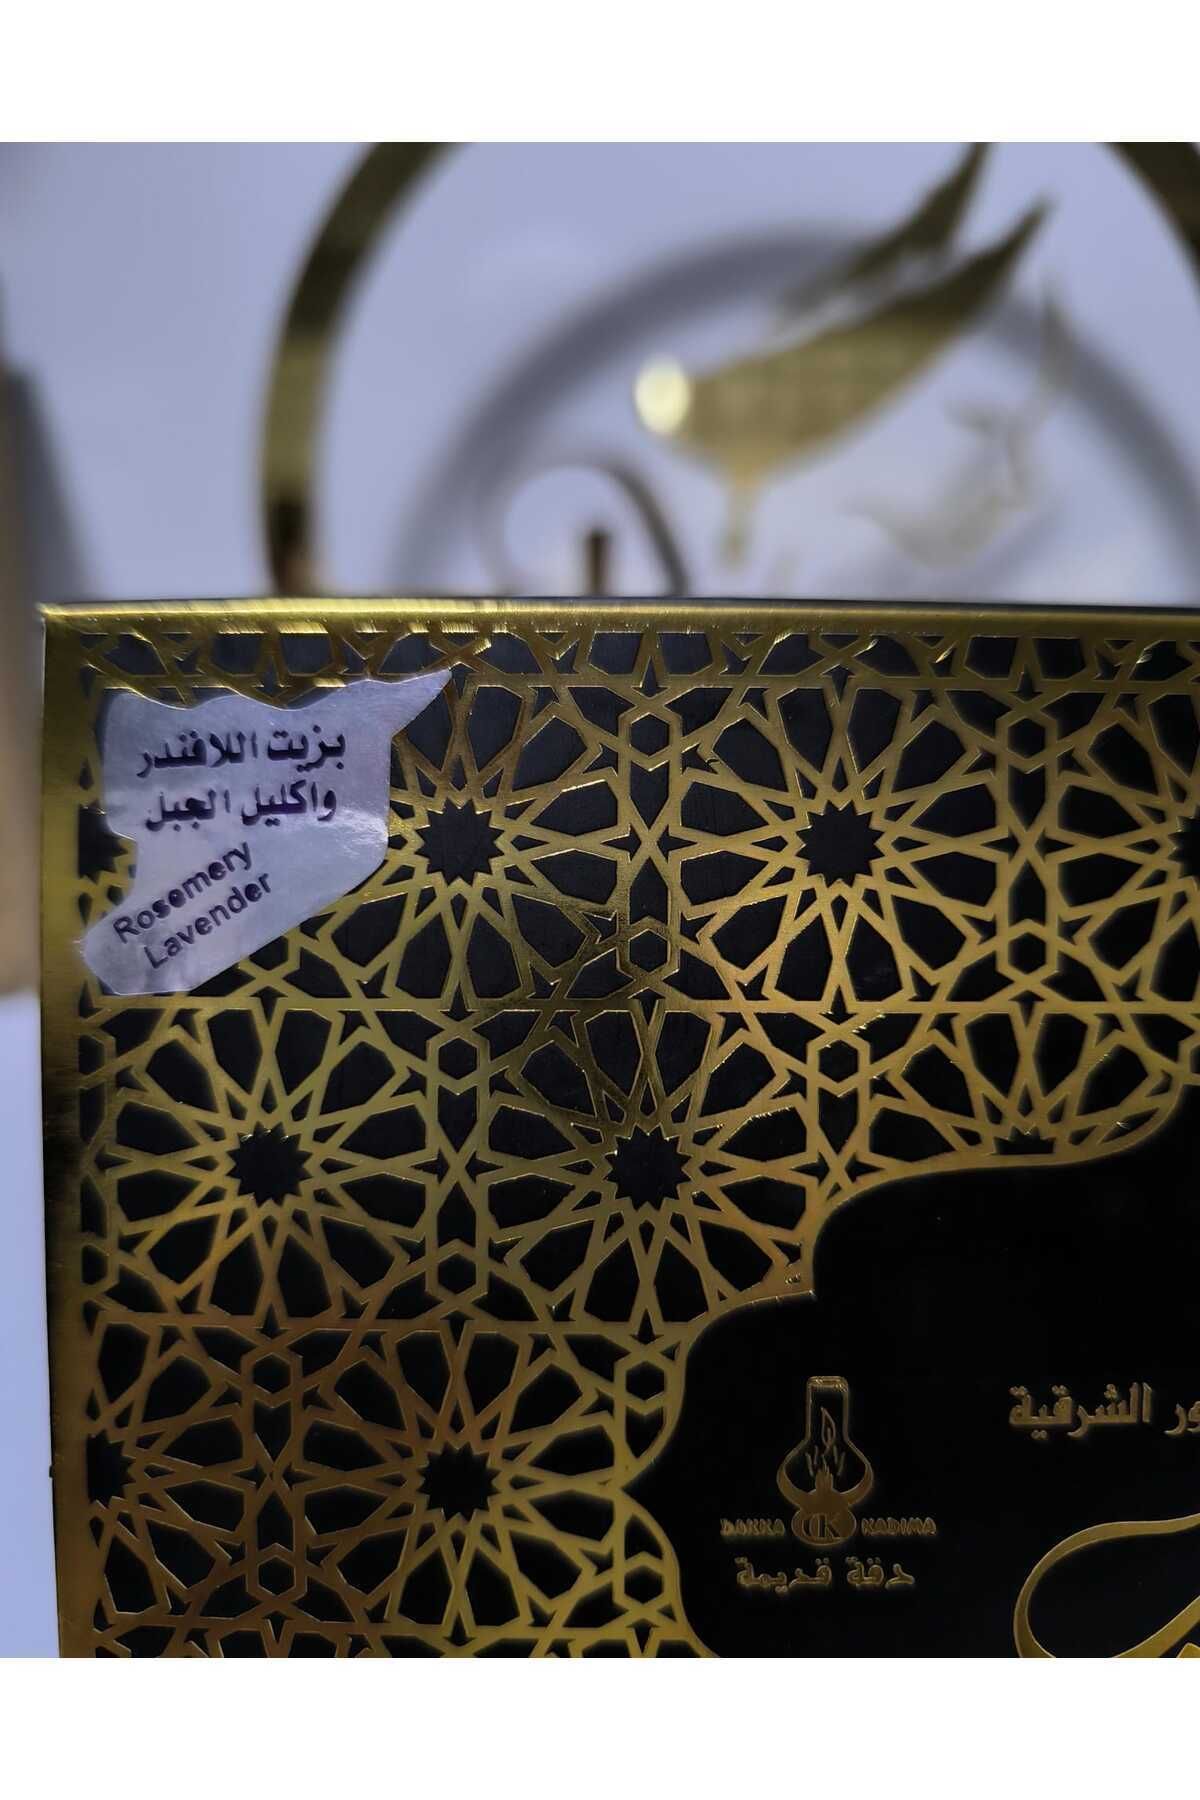 بزيت اللافندر
واكليل الجبل
Rosemery
Lavender
الشرقية
DAKKA DK KADIMA
دقة قديمة